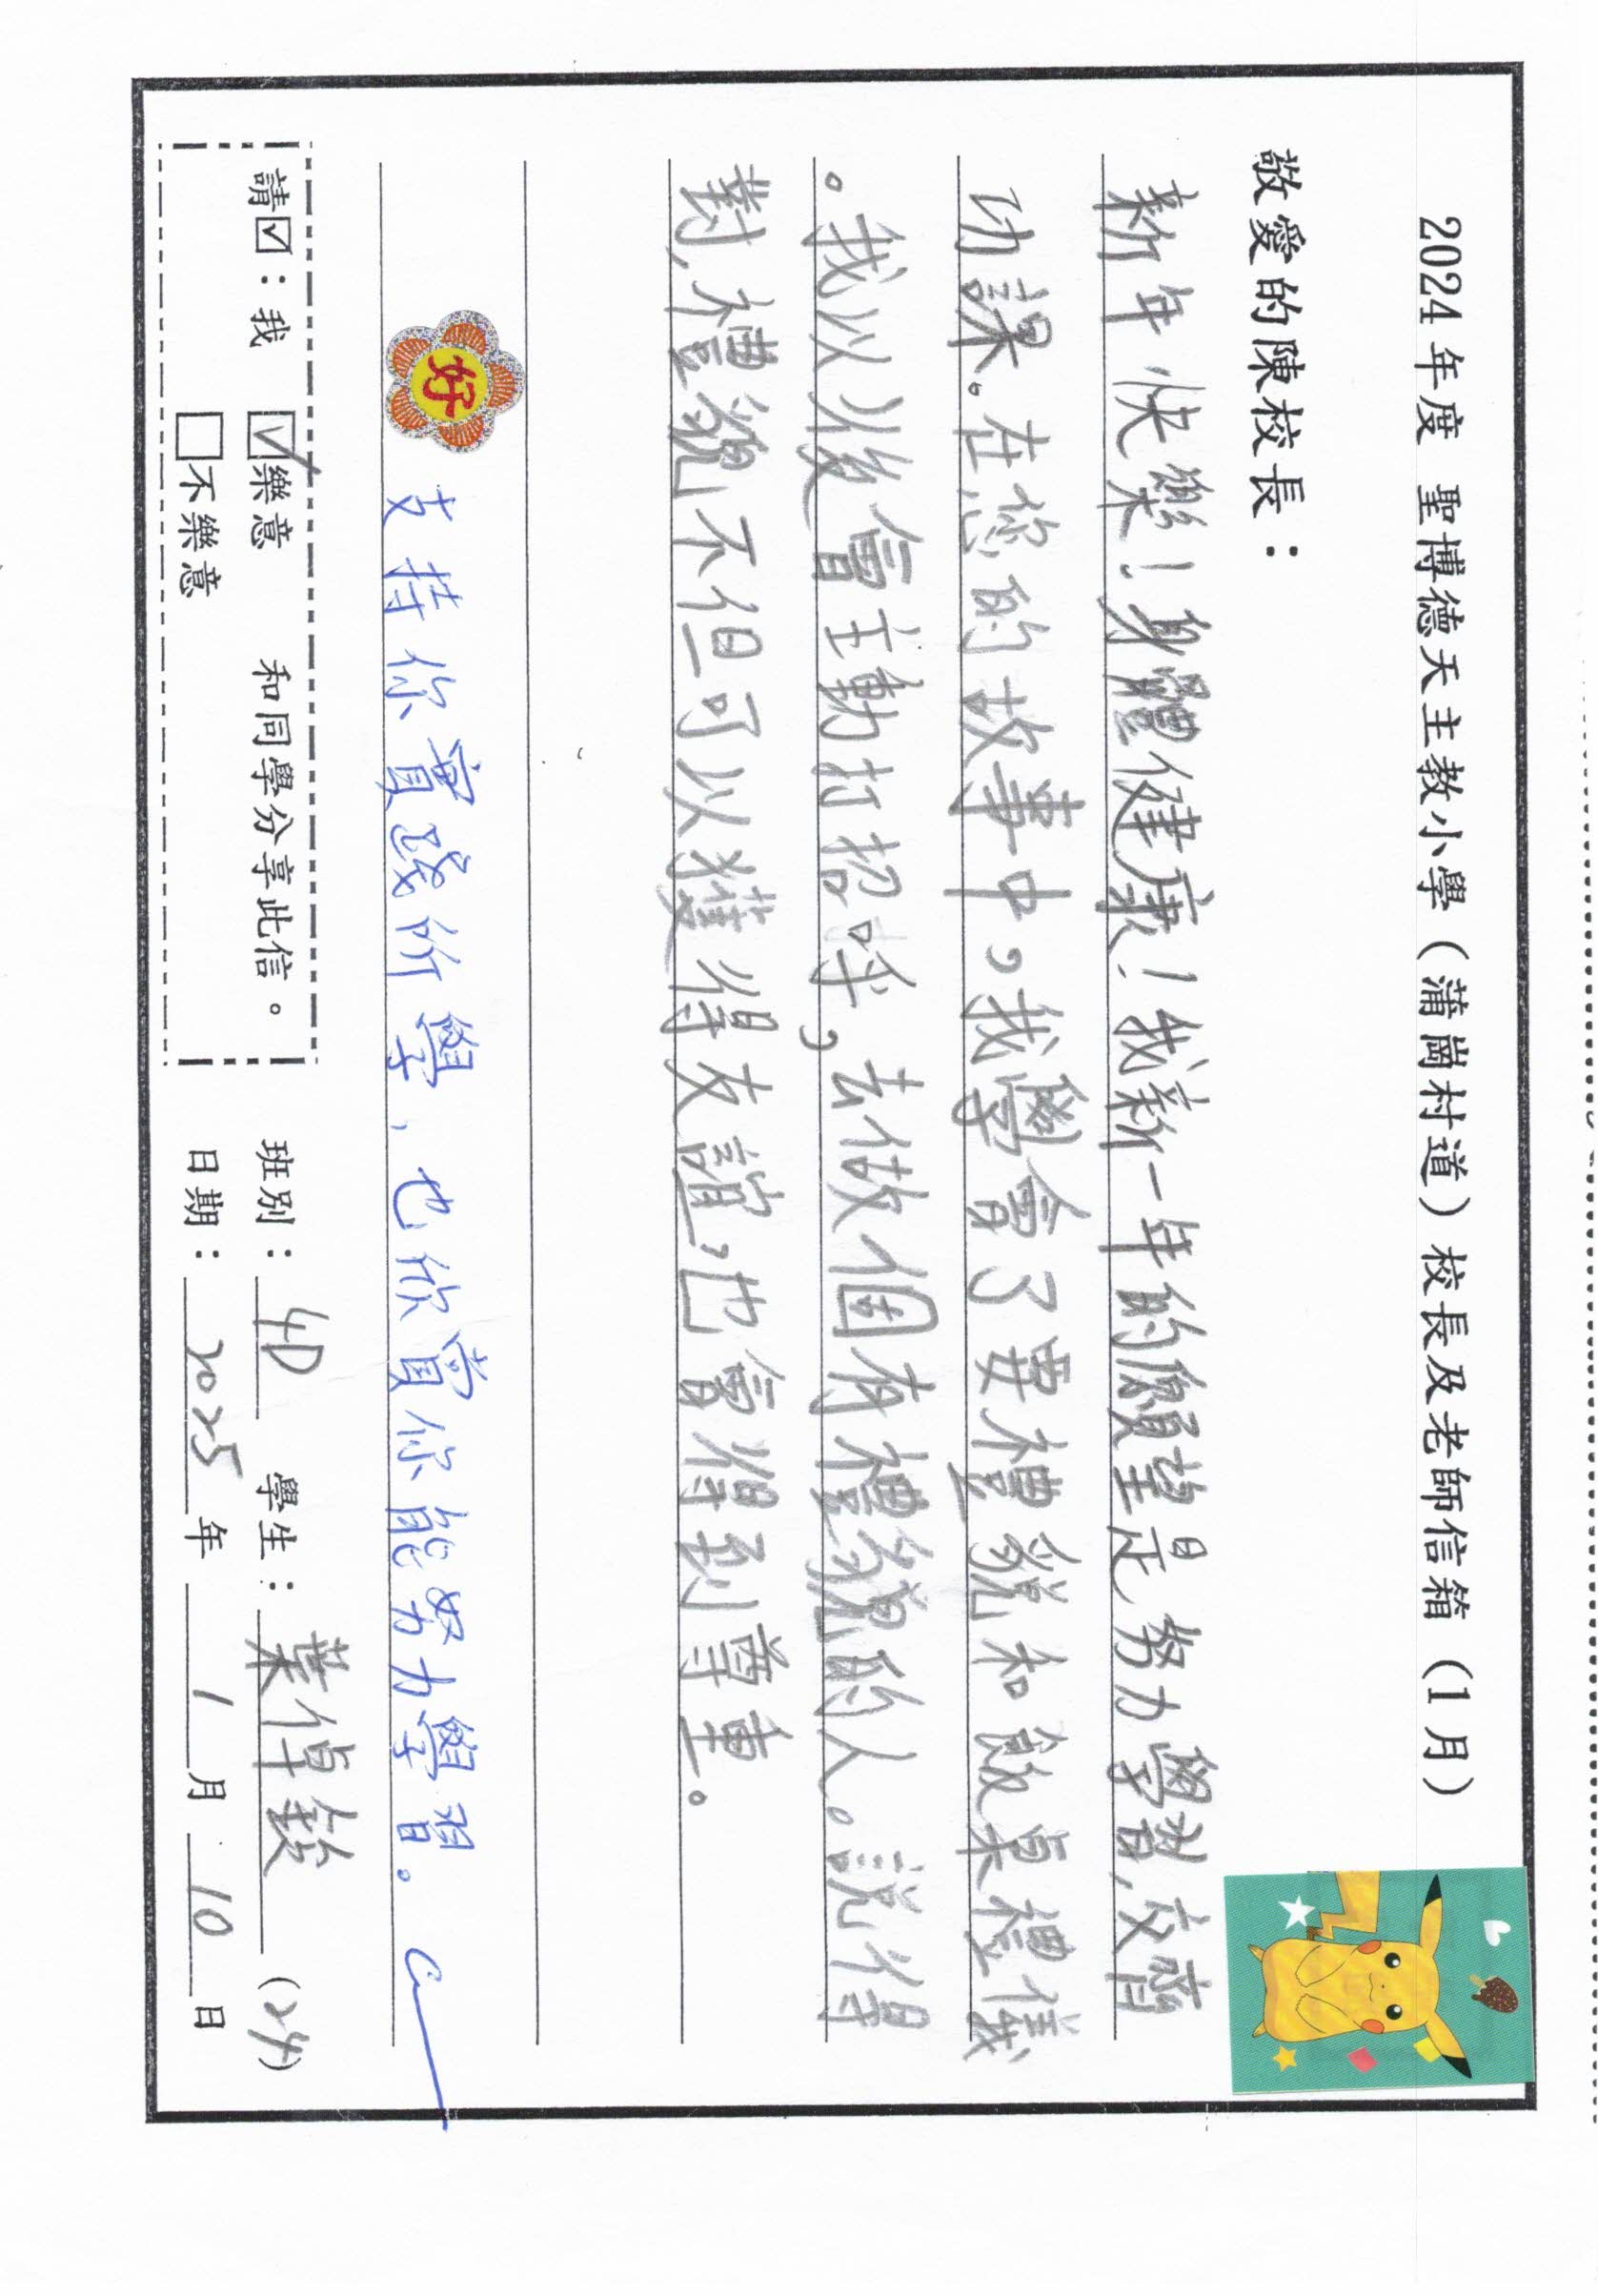 2024年度 聖博德天主教小學(蒲崗村道)校長及老師信箱(1月)
敬愛的陳校長：
新年快樂！身體健康！我新一年的願望是努力學習，交齊
功課。在您的故事中，我學會了要禮貌和餐桌禮儀
。我以後會主動打招呼，去做個有禮貌的人。說得
對，禮貌不但可以獲得友誼，也會得到尊重。
好
支持你實踐所學，也欣賞你能努力學習。
請☑：我 ☑樂意 和同學分享此信。
□不樂意
班別：4D 學生：葉倬鋑 (24)
日期：2025年1月10日